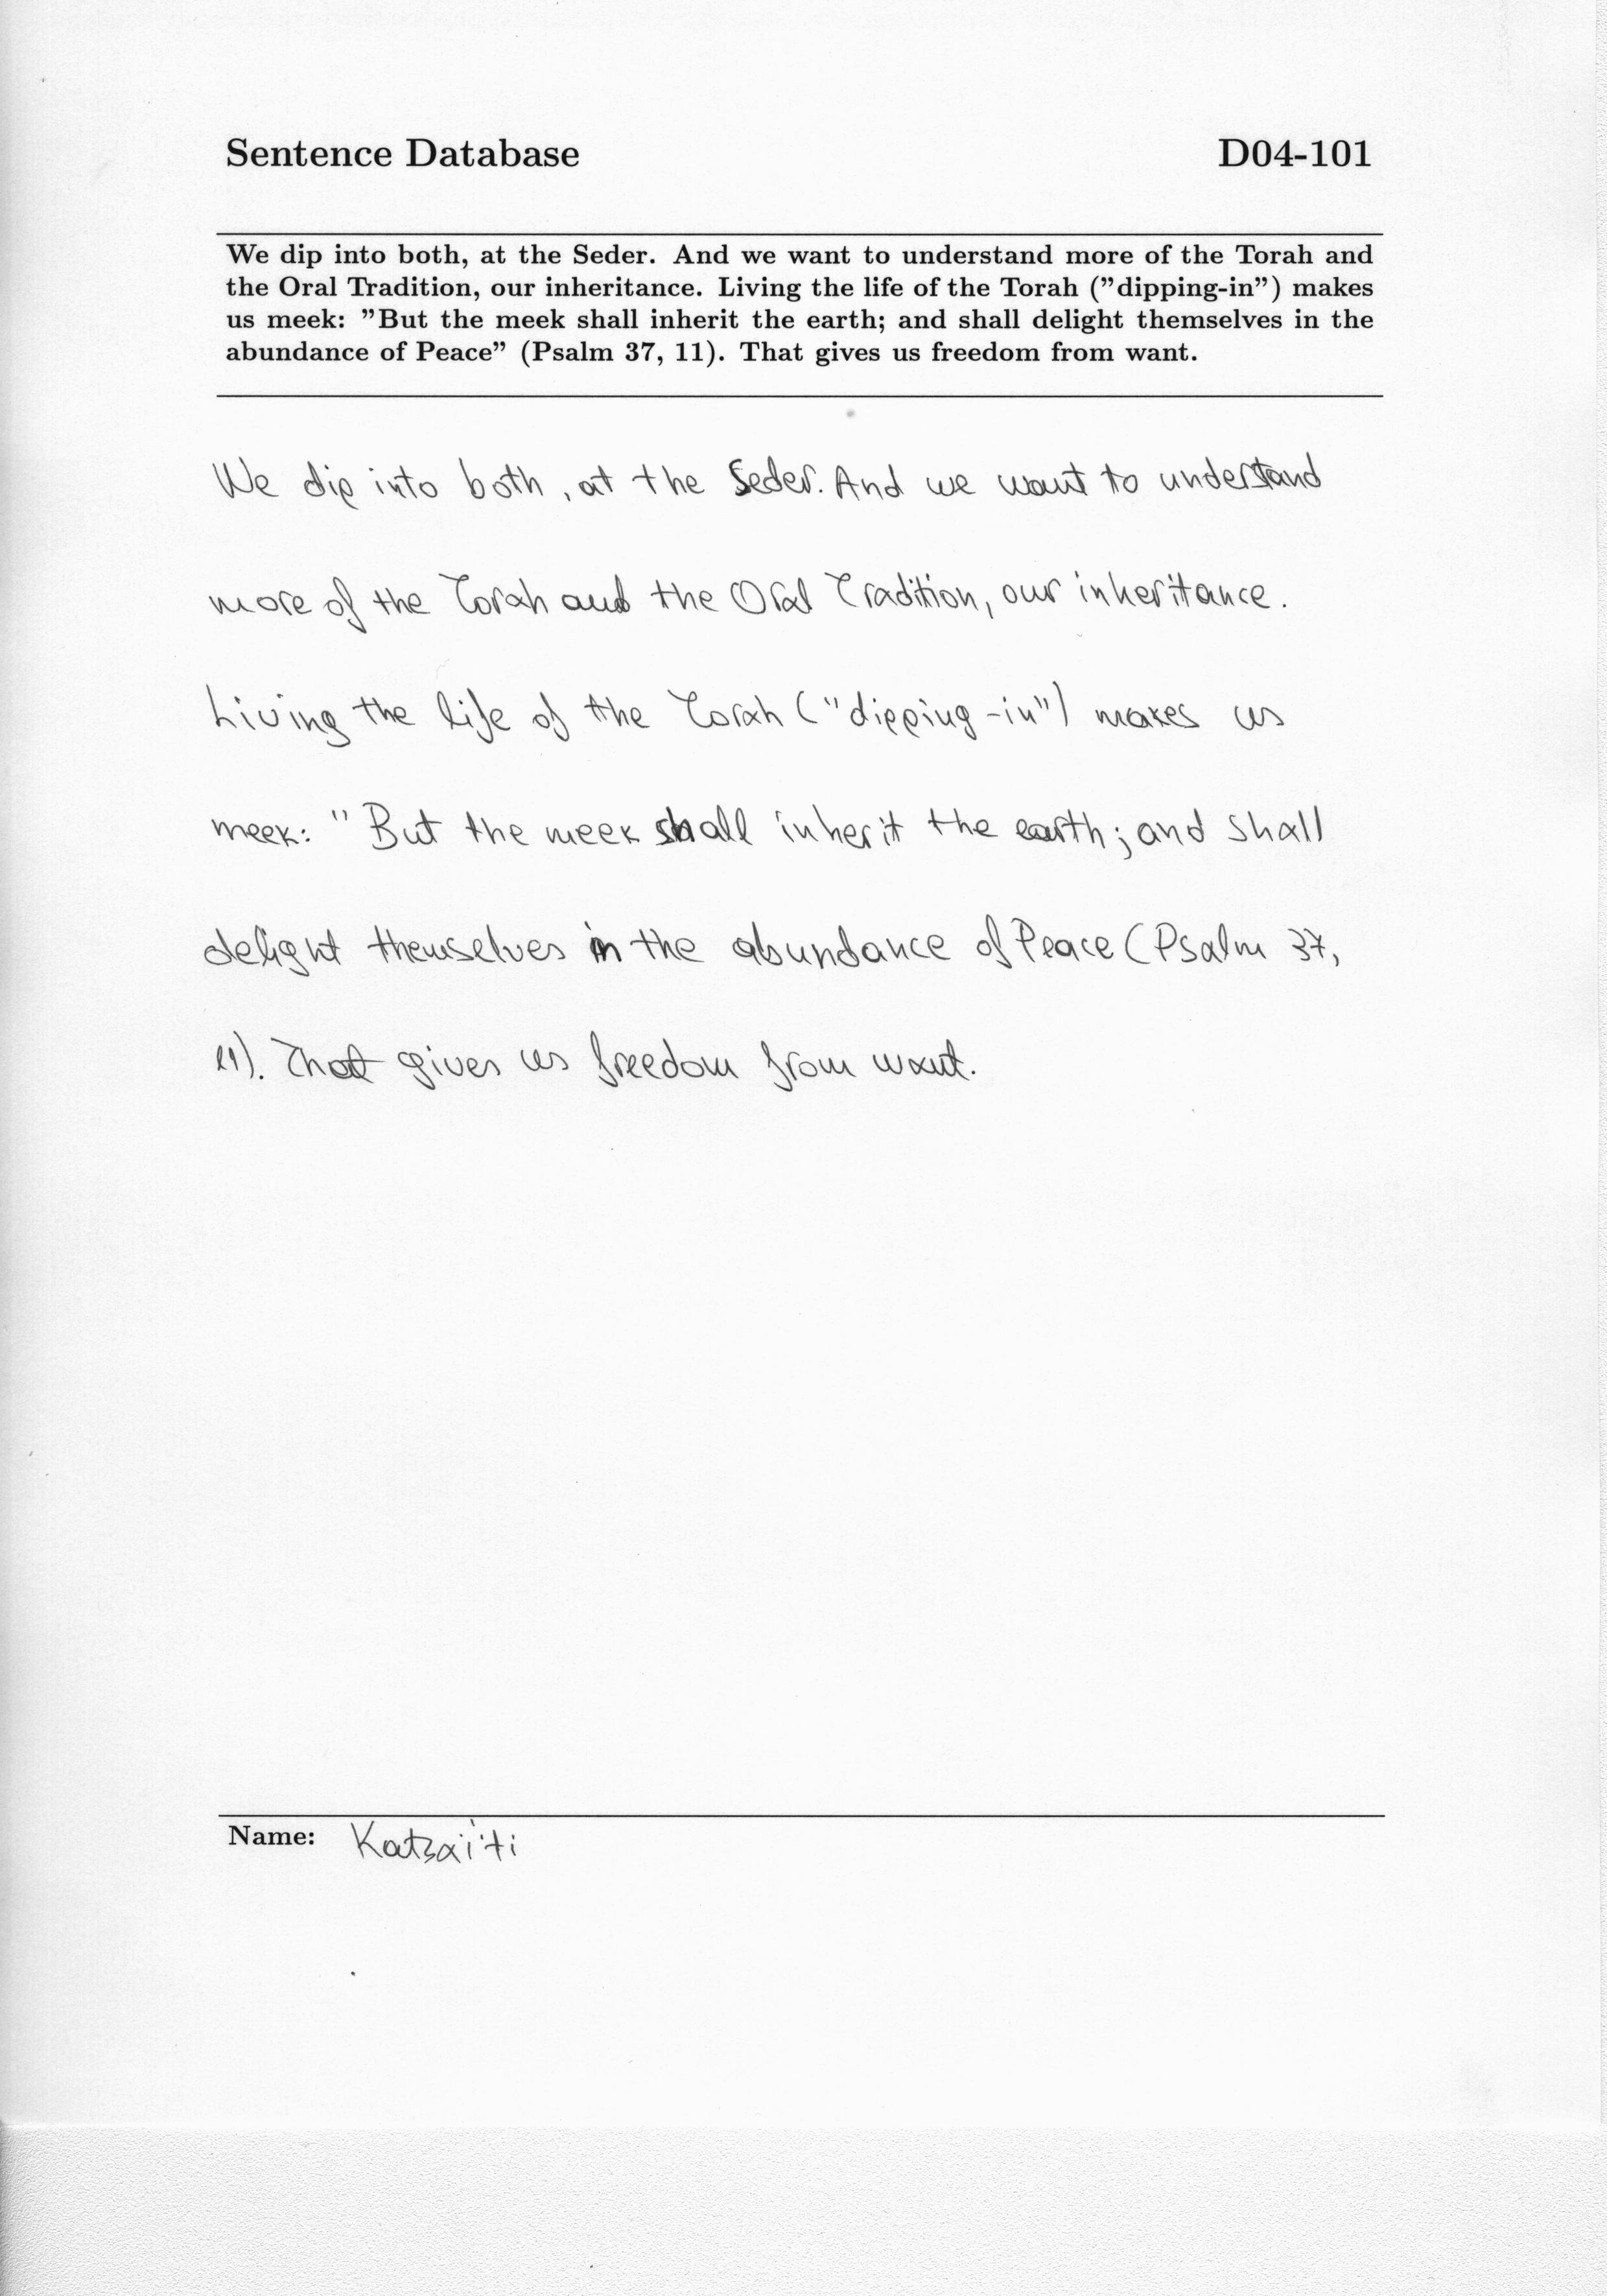 Sentence Database D04-101
We dip into both, at the Seder. And we want to understand more of the Torah and
the Oral Tradition, our inheritance. Living the life of the Torah (”dipping-in”) makes
us meek: ”But the meek shall inherit the earth; and shall delight themselves in the
abundance of Peace” (Psalm 37, 11). That gives us freedom from want.
We dip into both, at the Seder. And we want to understand
more of the Torah and the Oral Tradition, our inheritance.
Living the life of the Torah ("dipping-in") makes us
meek: "But the meek shall inherit the earth; and shall
delight themselves in the abundance of Peace (Psalm 37,
11). That gives us freedom from want.
Name: Katsaïti